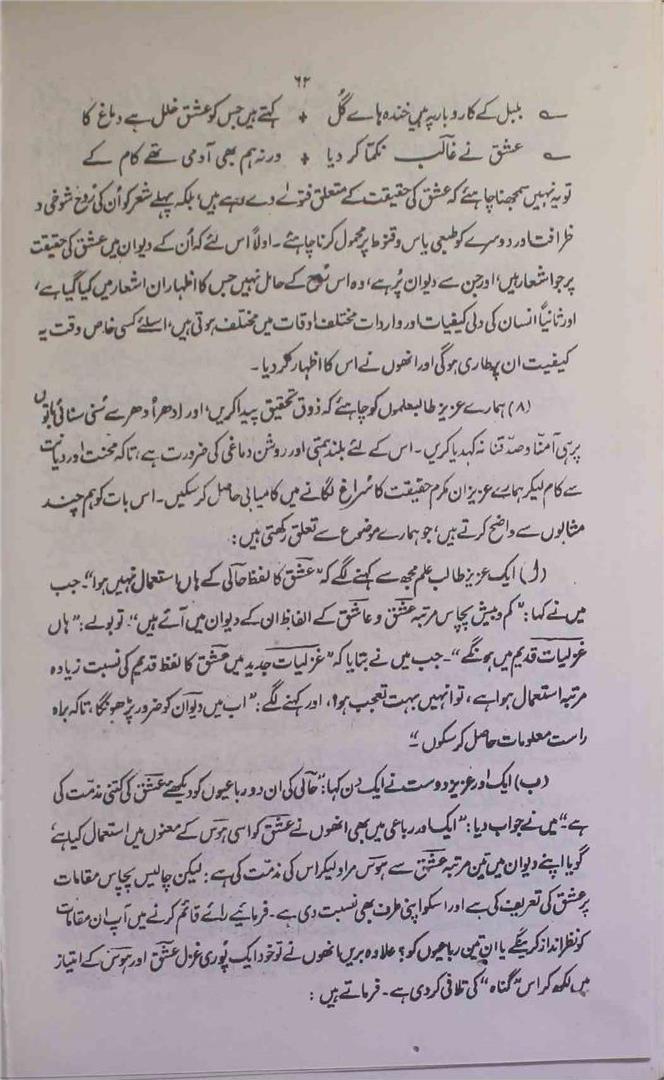 ۶۲
؎ بلبل کے کاروبار پہ ہیں خندہ ہاے گُل ٭ کہتے ہیں جس کو عشق خلل ہے دماغ کا
؎ عشق نے غالب نکمّا کر دیا ٭ ورنہ ہم بھی آدمی تھے کام کے
تو یہ نہیں سمجھنا چاہئے کہ عشق کی حقیقت کے متعلق فتوے دے رہے ہیں، بلکہ پہلے شعر کو اُن کی رُوح شوخی و
ظرافت اور دوسرے کو طبعی یاس و قنوط پر محمول کرنا چاہئے۔ اولاً اس لئے کہ اُن کے دیوان میں عشق کی حقیقت
پر جو اشعار ہیں، اور جن سے دیوان پُر ہے، وہ اس کے حامل نہیں جس کا اظہار ان اشعار میں کیا گیا ہے،
اور ثانیاً انسان کی دلی کیفیات اور واردات مختلف اوقات میں مختلف ہوتی ہیں، اسلئے کسی خاص وقت یہ
کیفیت ان پر طاری ہوگی اور انھوں نے اس کا اظہار کر دیا۔
(۸) ہمارے عزیز طالبعلموں کو چاہئے کہ ذوق تحقیق پیدا کریں، اور ادھر اُدھر سے سُنی سنائی باتوں
پر ہی آمنّا و صدّقنا نہ کہدیا کریں۔ اس کے لئے بلند ہمتی اور روشن دماغی کی ضرورت ہے، تاکہ محنت اور دیانت
سے کام لیکر ہمارے عزیزان مکرم حقیقت کا سُراغ لگانے میں کامیابی حاصل کر سکیں۔ اس بات کو ہم چند
مثالوں سے واضح کرتے ہیں، جو ہمارے موضوع سے تعلق رکھتی ہیں :
(ا) ایک عزیز طالب علم مجھ سے کہنے لگے کہ "عشق کا لفظ حالی کے ہاں استعمال نہیں ہوا"۔ جب
میں نے کہا : "کم و بیش پچاس مرتبہ عشق و عاشق کے الفاظ ان کے دیوان میں آئے ہیں" تو بولے : "ہاں
غزلیات قدیم میں ہونگے"۔ جب میں نے بتایا کہ "غزلیات جدید میں عشق کا لفظ قدیم کی نسبت زیادہ
مرتبہ استعمال ہوا ہے، تو انہیں بہت تعجب ہوا، اور کہنے لگے : "اب میں دیوان کو ضرور پڑھونگا، تاکہ براہ
راست معلومات حاصل کر سکوں۔"
(ب) ایک اور عزیز دوست نے ایک دن کہا : "حالی کی ان دو رباعیوں کو دیکھئے عشق کی کتنی مذمّت کی
ہے" میں نے جواب دیا : "ایک اور رباعی میں بھی انھوں نے عشق کو اسی ہوس کے معنوں میں استعمال کیا ہے،
گویا اپنے دیوان میں تین مرتبہ عشق سے ہوس مراد لیکر اس کی مذمّت کی ہے : لیکن چالیس پچاس مقامات
پر عشق کی تعریف کی ہے اور اسکو اپنی طرف بھی نسبت دی ہے۔ فرمائیے رائے قائم کرنے میں آپ ان مقامات
کو نظر انداز کرینگے یا ان تین رباعیوں کو؟ علاوہ بریں انھوں نے تو خود ایک پُوری غزل عشق اور ہوس کے امتیاز
میں لکھ کر اس "گناہ" کی تلافی کر دی ہے۔ فرماتے ہیں :